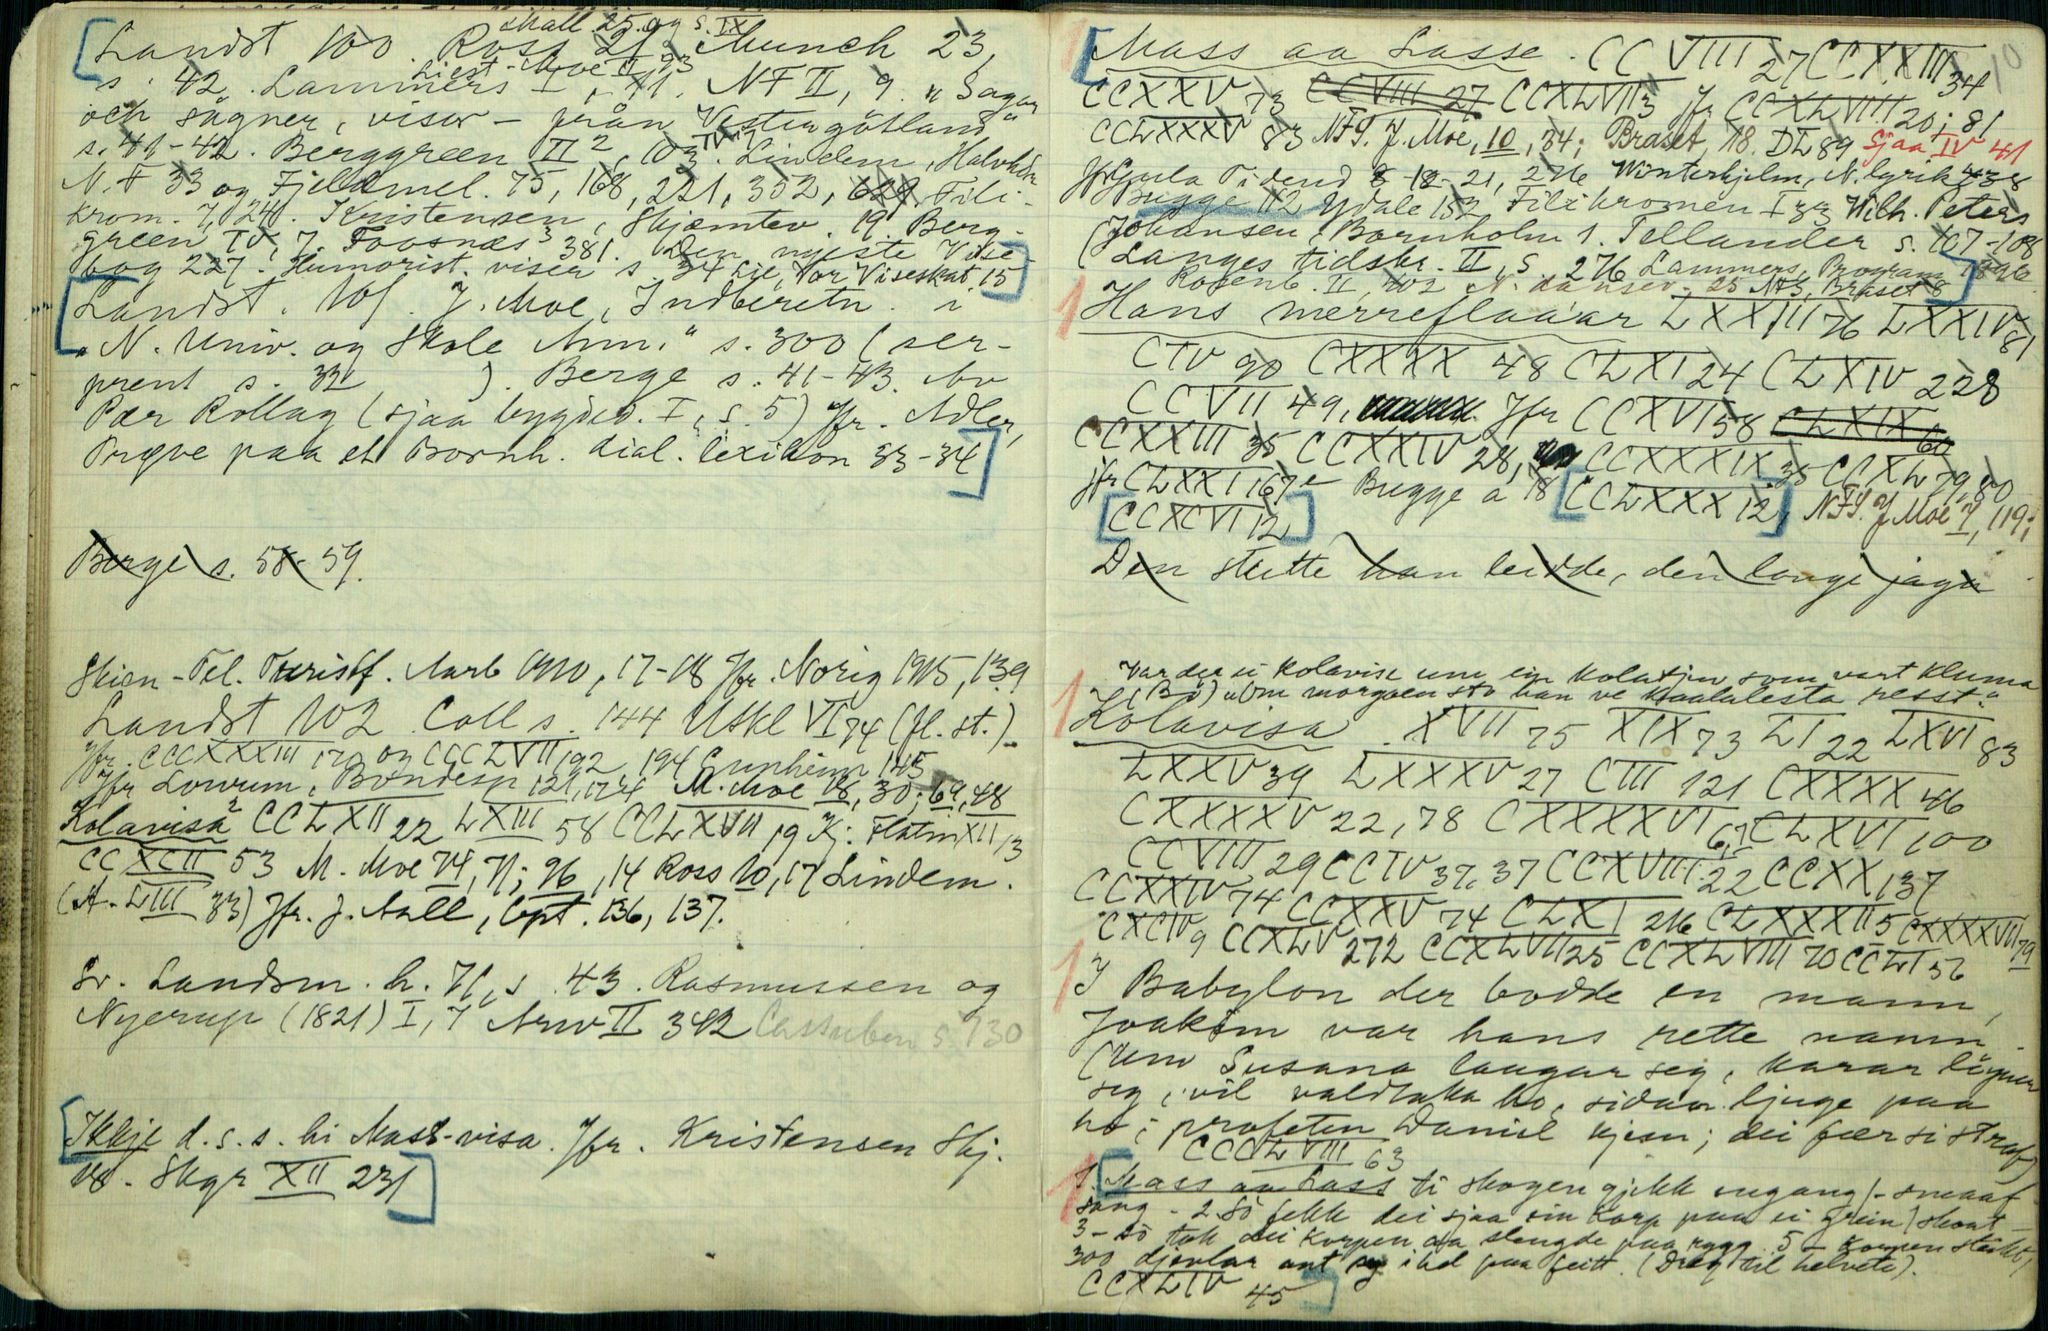 Skall. 25 og s. IX
Landst 100. Ross 21, Munch 23,
Liest. Moe II 93
s. 42. Lammers I, 41. NF II, 9. "Sagor
och sägner, visor - från Vestergötland"
s. 41-42. Berggreen II², 103. Lindem, Halvhdr
N.F 33 og Fjeldmel. 75, 168, 221, 352, 629. Fili-
krom. 7, 240. Kristensen, Skjæmtev. 19. Berg-
green IV, 7. Foosnæs 381. Den nyeste Vise
bog 227. Humorist. viser s. 34 Lie, Vor Viseskat, 15
Landst. 101. J. Moe, Indberetn. i
"N. Univ. og Skole Ann." s. 300 (ser-
prent s. 32 ). Berge s. 41-43. Av
Pær Rollag (sjaa bygdev. I, s. 5) Jfr. Adler,
Prøve paa et Bornh. dial. lexikon 33-34
Berge s. 58-59.
Skien-Tel. Turistf. Aarb 1910, 17-18 Jfr. Norig 1915, 139
Landst 102 Coll s. 144 Utskl VI 74 (fl. st.)
Jfr. CCCXXXIII 170 og CCCLVII 192, 194 Gunheim 145
Jfr Lovrum, Bondesp 121, 124 M. Moe 18, 30; 69, 48
Kolavisa CCLXII 22 LXIII 58 CCLXVII 19 Kj. Flatin XII 13
CCXCII 53 M. Moe 74, 71; 96, 14 Ross 10, 17 Lindem.
(A. LIII 83) Jfr. J. Aall, Opt. 136, 137.
Sv. Landsm. h. 71, s. 43. Rasmussen og
Nyerup (1821) I, 7 Arw II 342 s 730
Ikkje d. s. s. hi Mass-visa. Jfr. Kristensen Skj.
18. Skgr XII 231
10
1 Mass aa Lasse. CCVIII 27 CCXXIII 34
CCXXV 73 CCVIII 27 CCXLVII 3 jfr CCXLVIII 20; 81
CCLXXXV 83 NFS. J. Moe, 10, 34; Braset, 18. DL 89 Sjaa IV 41
Jfr Gula Tidend 8-12-21, 276 Winterhjelm, N. lyrik 438
Bugge 112 Ydale 152 Filikromen I 33 Wilh. Peters
(Johansen, Bornholm 1. Tellander s. 107-108
(Langes tidskr. II, S. 276 Lammers, Program 1896
Rosenb. II, 402 N. dansev. 25 NFS, Braset 8
1 Hans merreflaaar LXXIII 76 LXXIV 81
CIV 90 CXXXX 48 CLXI 24 CLXIV 228
CCVII 49, Jfr CCXVI 58 CLXIX 60
CCXXIII 35 CCXXIV 28, CCXXXIX 35 CCXL 79, 80
jfr CLXXI 167 Bugge a 18 CCLXXX 12 NFS. J Moe I, 119;
CCXCVI 12
Den stutte han leidde, den longe jaga
Var der ei kolavise um ein kolatjuv som vart kluma
(Bø) "Om morgoen sto han ve kaalalesta resst."
1 Kolavisa. XVII 75 XIX 73 LI 22 LXVI 83
LXXV 39 LXXXV 27 CIII 121 CXXXX 46
CXXXXV 22, 78 CXXXXVI 67 CLXVI 100
CCVIII 29 CCIV 37, 37 CCXVIII 22 CCXX 137
CCXXIV 74 CCXXV 74 CLXI 216 CLXXXII 5 CXXXXVII 79
CXCIV 9 CCXLV 272 CCXLVII 25 CCXLVIII 70 CCLI 56
1 I Babylon der bodde en mann,
Joakim var hans rette namn.
(Um Susana laugar seg, karar løyner
seg, vil valdtaka ho, sidan ljuge paa
ho; profeten Daniel kjem; dei fær si straf)
CCCLVIII 63
1 1. Mass aa Lass ti skogen gjekk eingang /- smaaf
sang - 2 Så fekk dei sjaa ein korp paa ei grein / skaut -
3 - så tok dei korpen aa slengde paa rygg 5 - Korpen steikt,
300 djevlar aat seg ihel paa feitt. (Dreg til helvete).
CCXLIV 45